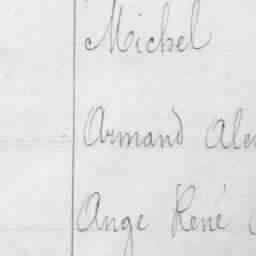 Michel
Armand
Ange René